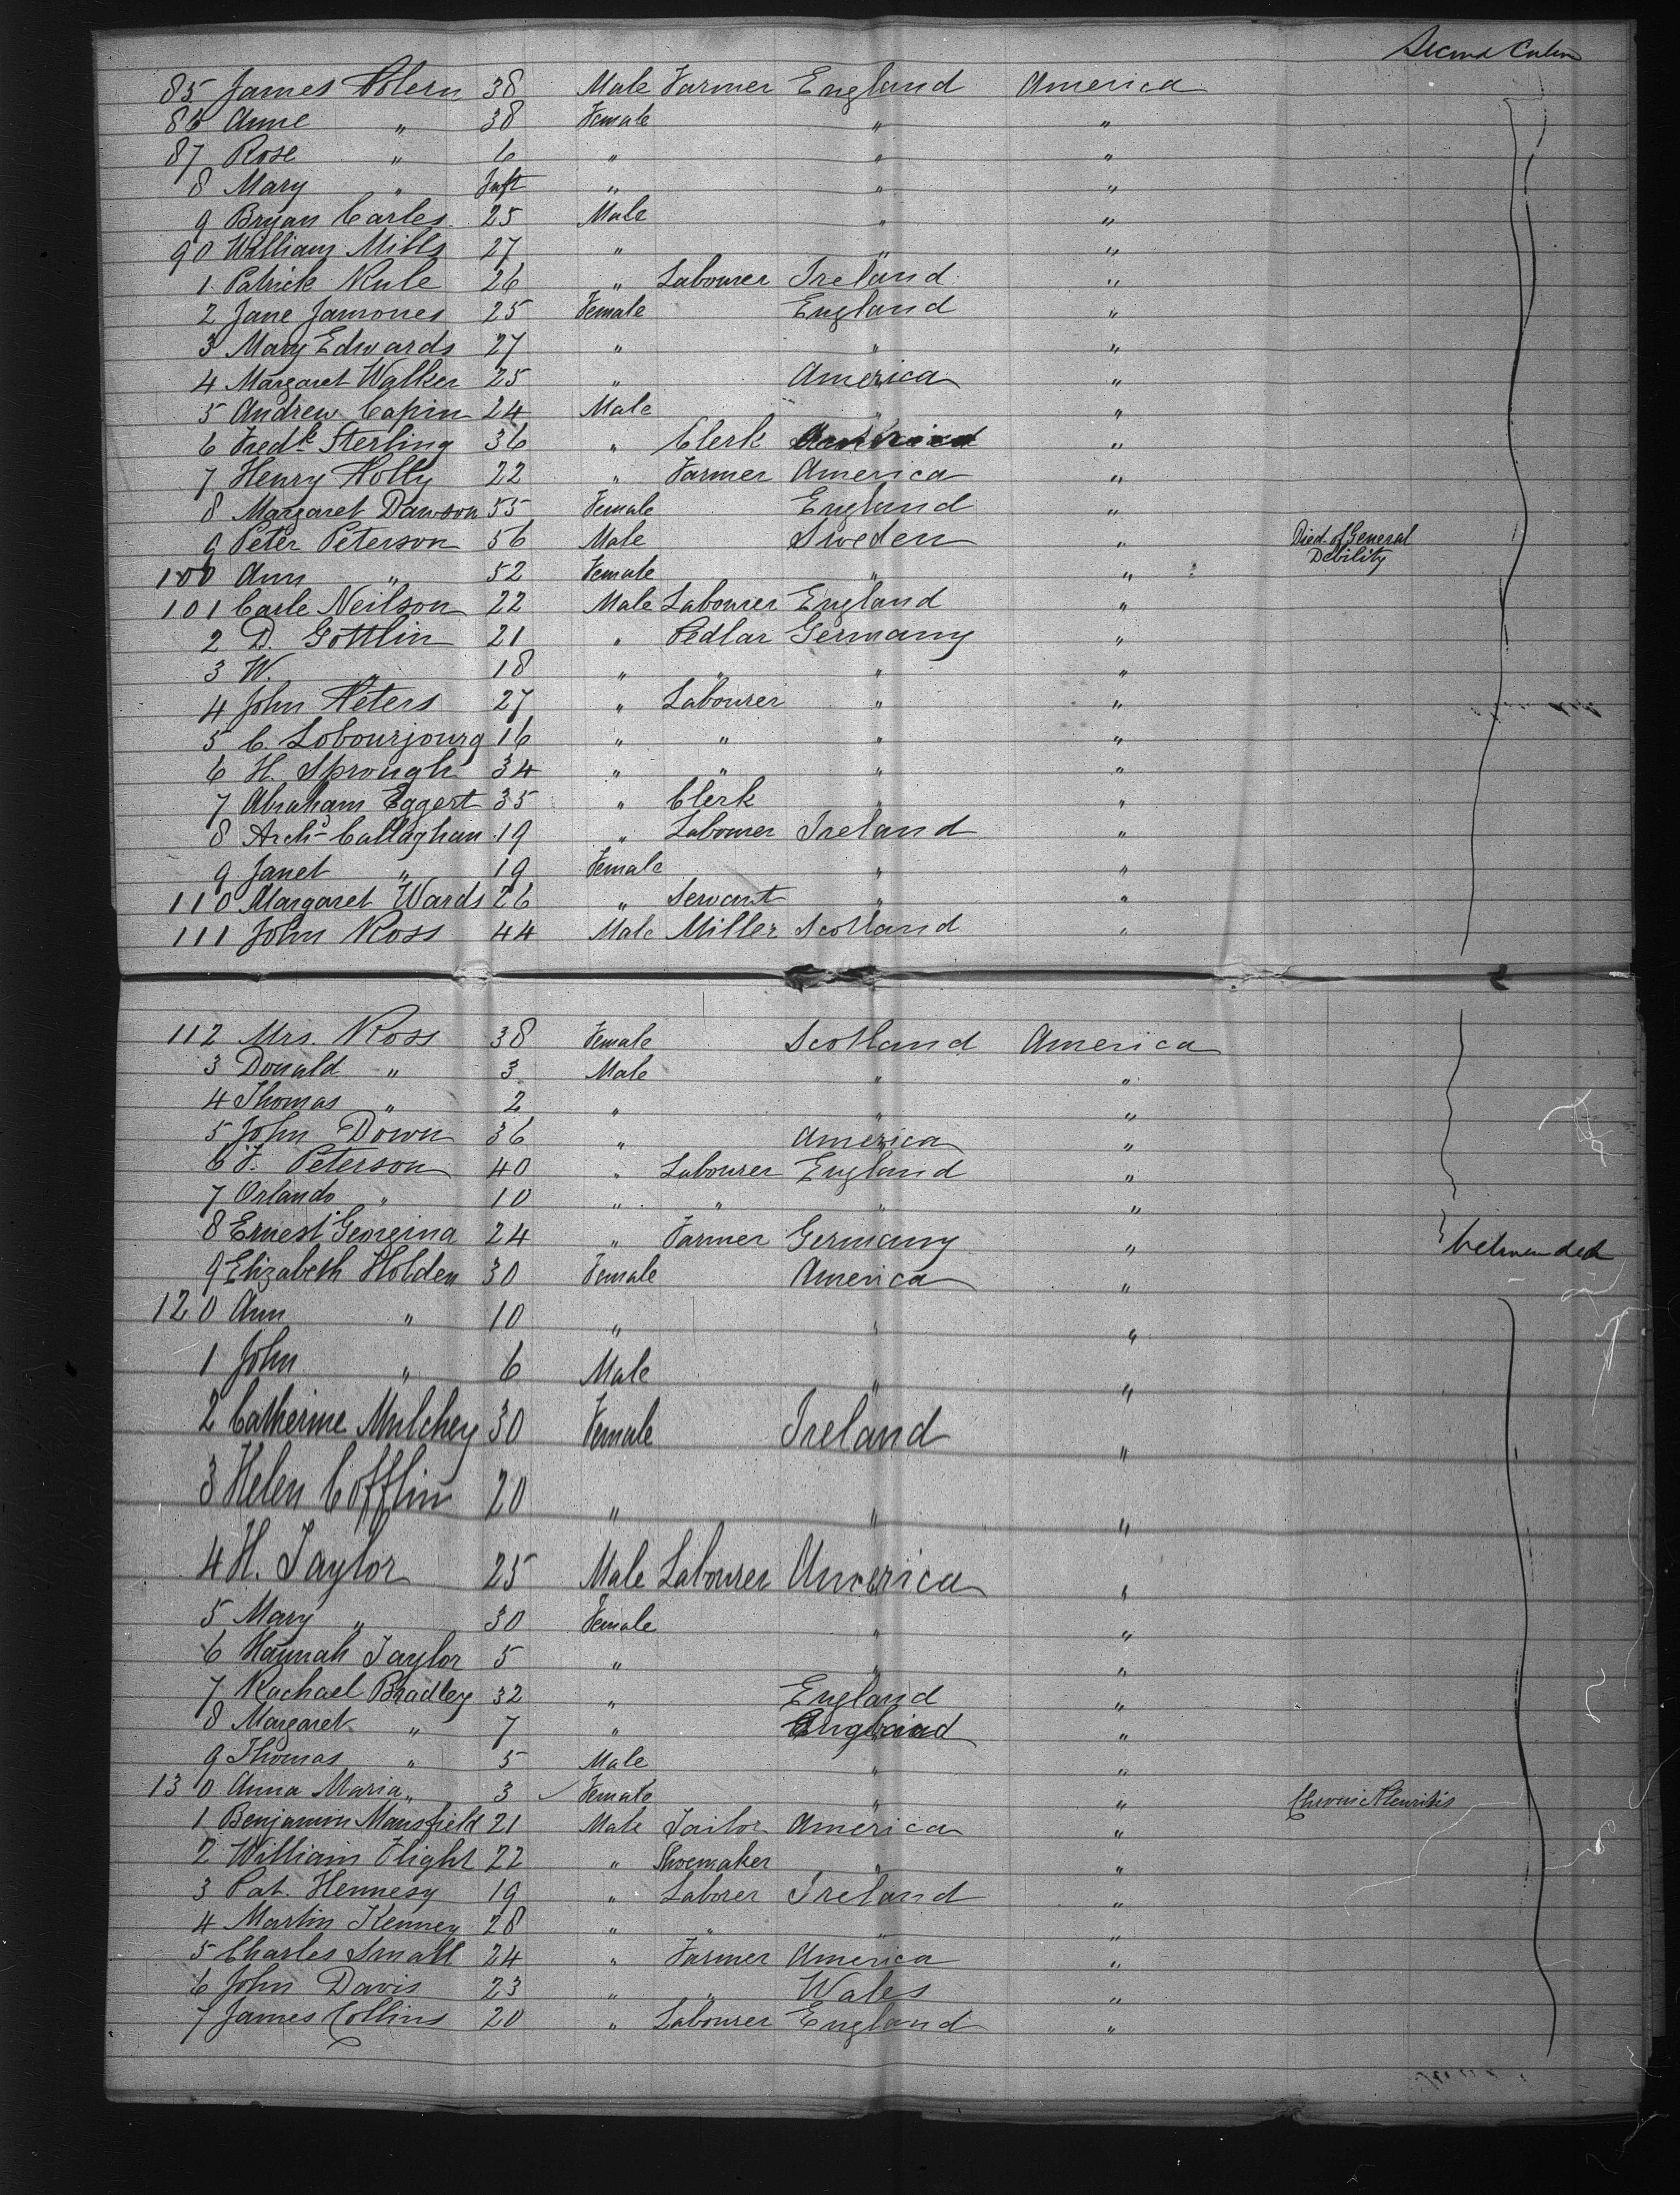 Second Cabin
85 James Holern 38 Male Farmer England America
86 Anne " 38 Female " "
87 Rose " 6 " " "
8 Mary " Inft " " "
9 Bryan Carles 25 Male " "
90 William Mills 27 " " "
1 Patrick Rule 26 " Labourer Ireland "
2 Jane Jamones 25 Female England "
3 Mary Edwards 27 " " "
4 Margaret Walker 25 " America "
5 Andrew Capin 24 Male " "
6 Fredk Sterling 36 " Clerk "
7 Henry Holly 22 " Farmer America "
8 Margaret Dawson 55 Female England "
9 Peter Peterson 56 Male Sweden " Died of General Debility
100 Ann " 52 Female " "
101 Carle Neilson 22 Male Labourer England "
2 D. Gottlin 21 " Pedlar Germany "
3 W. " 18 " " " "
4 John Peters 27 " Labourer " "
5 C. Lobourjourg 16 " " " "
6 H. Sprough 34 " " " "
7 Abraham Eggert 35 " Clerk " "
8 Archd Callaghan 19 " Labourer Ireland "
9 Janet " 19 Female " "
110 Margaret Wards 26 " Servant " "
111 John Ross 44 Male Miller Scotland "
112 Mrs. Ross 38 Female Scotland America
3 Donald " 3 Male " "
4 Thomas " 2 " " "
5 John Down 36 " America "
6 J. Peterson 40 " Labourer England "
7 Orlando " 10 " " " "
8 Ernest Georgina 24 " Farmer Germany " between deck
9 Elizabeth Holden 30 Female America "
120 Ann " 10 " " "
1 John " 6 Male " "
2 Catherine Mulchey 30 Female Ireland "
3 Helen Cofflin 20 " " "
4 H. Taylor 25 Male Labourer America "
5 Mary " 30 Female " "
6 Hannah Taylor 5 " " "
7 Rachael Bradley 32 " England "
8 Margaret " 7 " England "
9 Thomas " 5 Male " "
130 Anna Maria " 3 Female " " Chronic Pleuritis
1 Benjamin Mansfield 21 Male Tailor America "
2 William Flight 22 " Shoemaker " "
3 Pat. Hennesy 19 " Laborer Ireland "
4 Martin Kenney 28 " " " "
5 Charles Small 24 " Farmer America "
6 John Davis 23 " " Wales "
7 James Collins 20 " Labourer England "